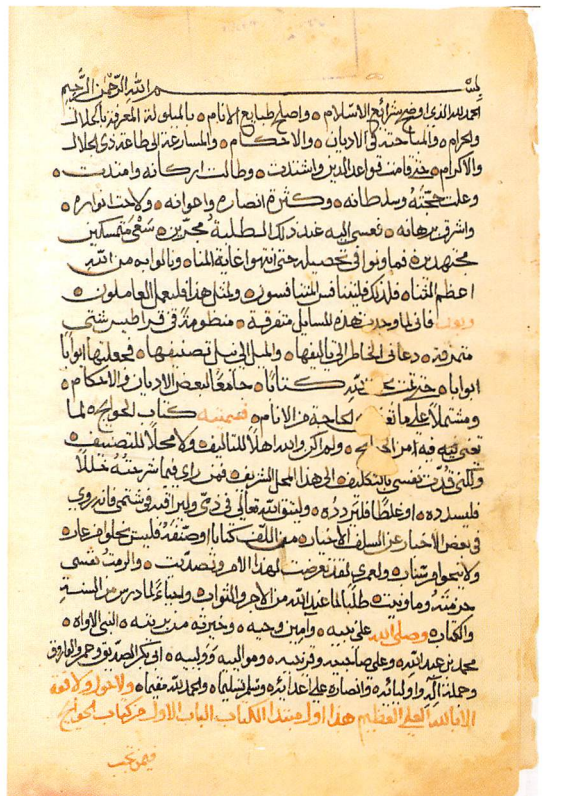 بسم الله الرحمن الرحيم
الحمد لله الذي اوضح شرائع الاسلام واصلح طبايع الانام بالمبلولة المعرفة بالحلال
والحرام والمباحثة في الاديان والاحكام والمسارعة الى طاعة ذي الجلال
والاكرام حتى قامت قواعد الدين واشتدت وطالت اركانه وامتدت
وعلت حجته وسلطانه وكثرة انصاره واعوانه ولاحت انواره
واشرق برهانه تعسى اليه عند ذلك الطلبة مجرين سعي متمسكين
مجتهدين فما ونوا في تحصيله حتى انتهوا غاية المنا ونالوا به من الله
اعظم الثنا فلذلك فليتنافس المتنافسون ولمثل هذا فليعمل العاملون
وبعد فاني لما وجدت هذه المسايل متفرقة منظومة في قراطيس شتى
متمزقة دعاني الخاطر الى تاليفها والميل الى نيل تصنيفها فجعلتها ابوابا
ابوابا حتى تمت كتابا جامعا لبعض الاديان والاحكام
ومشتملا على ما الحاجة من الانام فسميته كتاب الحوايج لما
فيه من ولم اكن والله اهلا للتاليف ولا محلا للتصنيف
ولكني قدرت نفسي بالتكليف الى هذا المحل الشريف فمن راى فيما شرحته خللا
فليسدده او غلطا فليردده وليتق الله تعالى في ذمي وليراقبه في شتمي فانه روي
في بعض الاخبار عن السلف الاخيار من الف كتابا او صنفه فليس يخلو من عاب
ولا ينجو من شنات ولعمري لقد تعرضت لهذا الامر وتصديت والزمت نفسي
حرمته وما ونيت طلبا لما عند الله من الاجر والثواب واحياء لما درس من السنة
والكتاب وصلى الله على نبيه وامين وحيه وخيرته من بريته النبي الاواه
محمد بن عبد الله وعلى صاحبيه وقرنيه ومواليه ووليه ابي بكر الصديق وعمر الفاروق
وجملة آله واوليائه وانصاره على اعدائه وسلم تسليما والحمد لله مقيما ولا حول ولا قوة
الا بالله العلي العظيم هذا اول مبتدا الكتاب الباب الاول من كتاب الحوايج
فيمن تجب